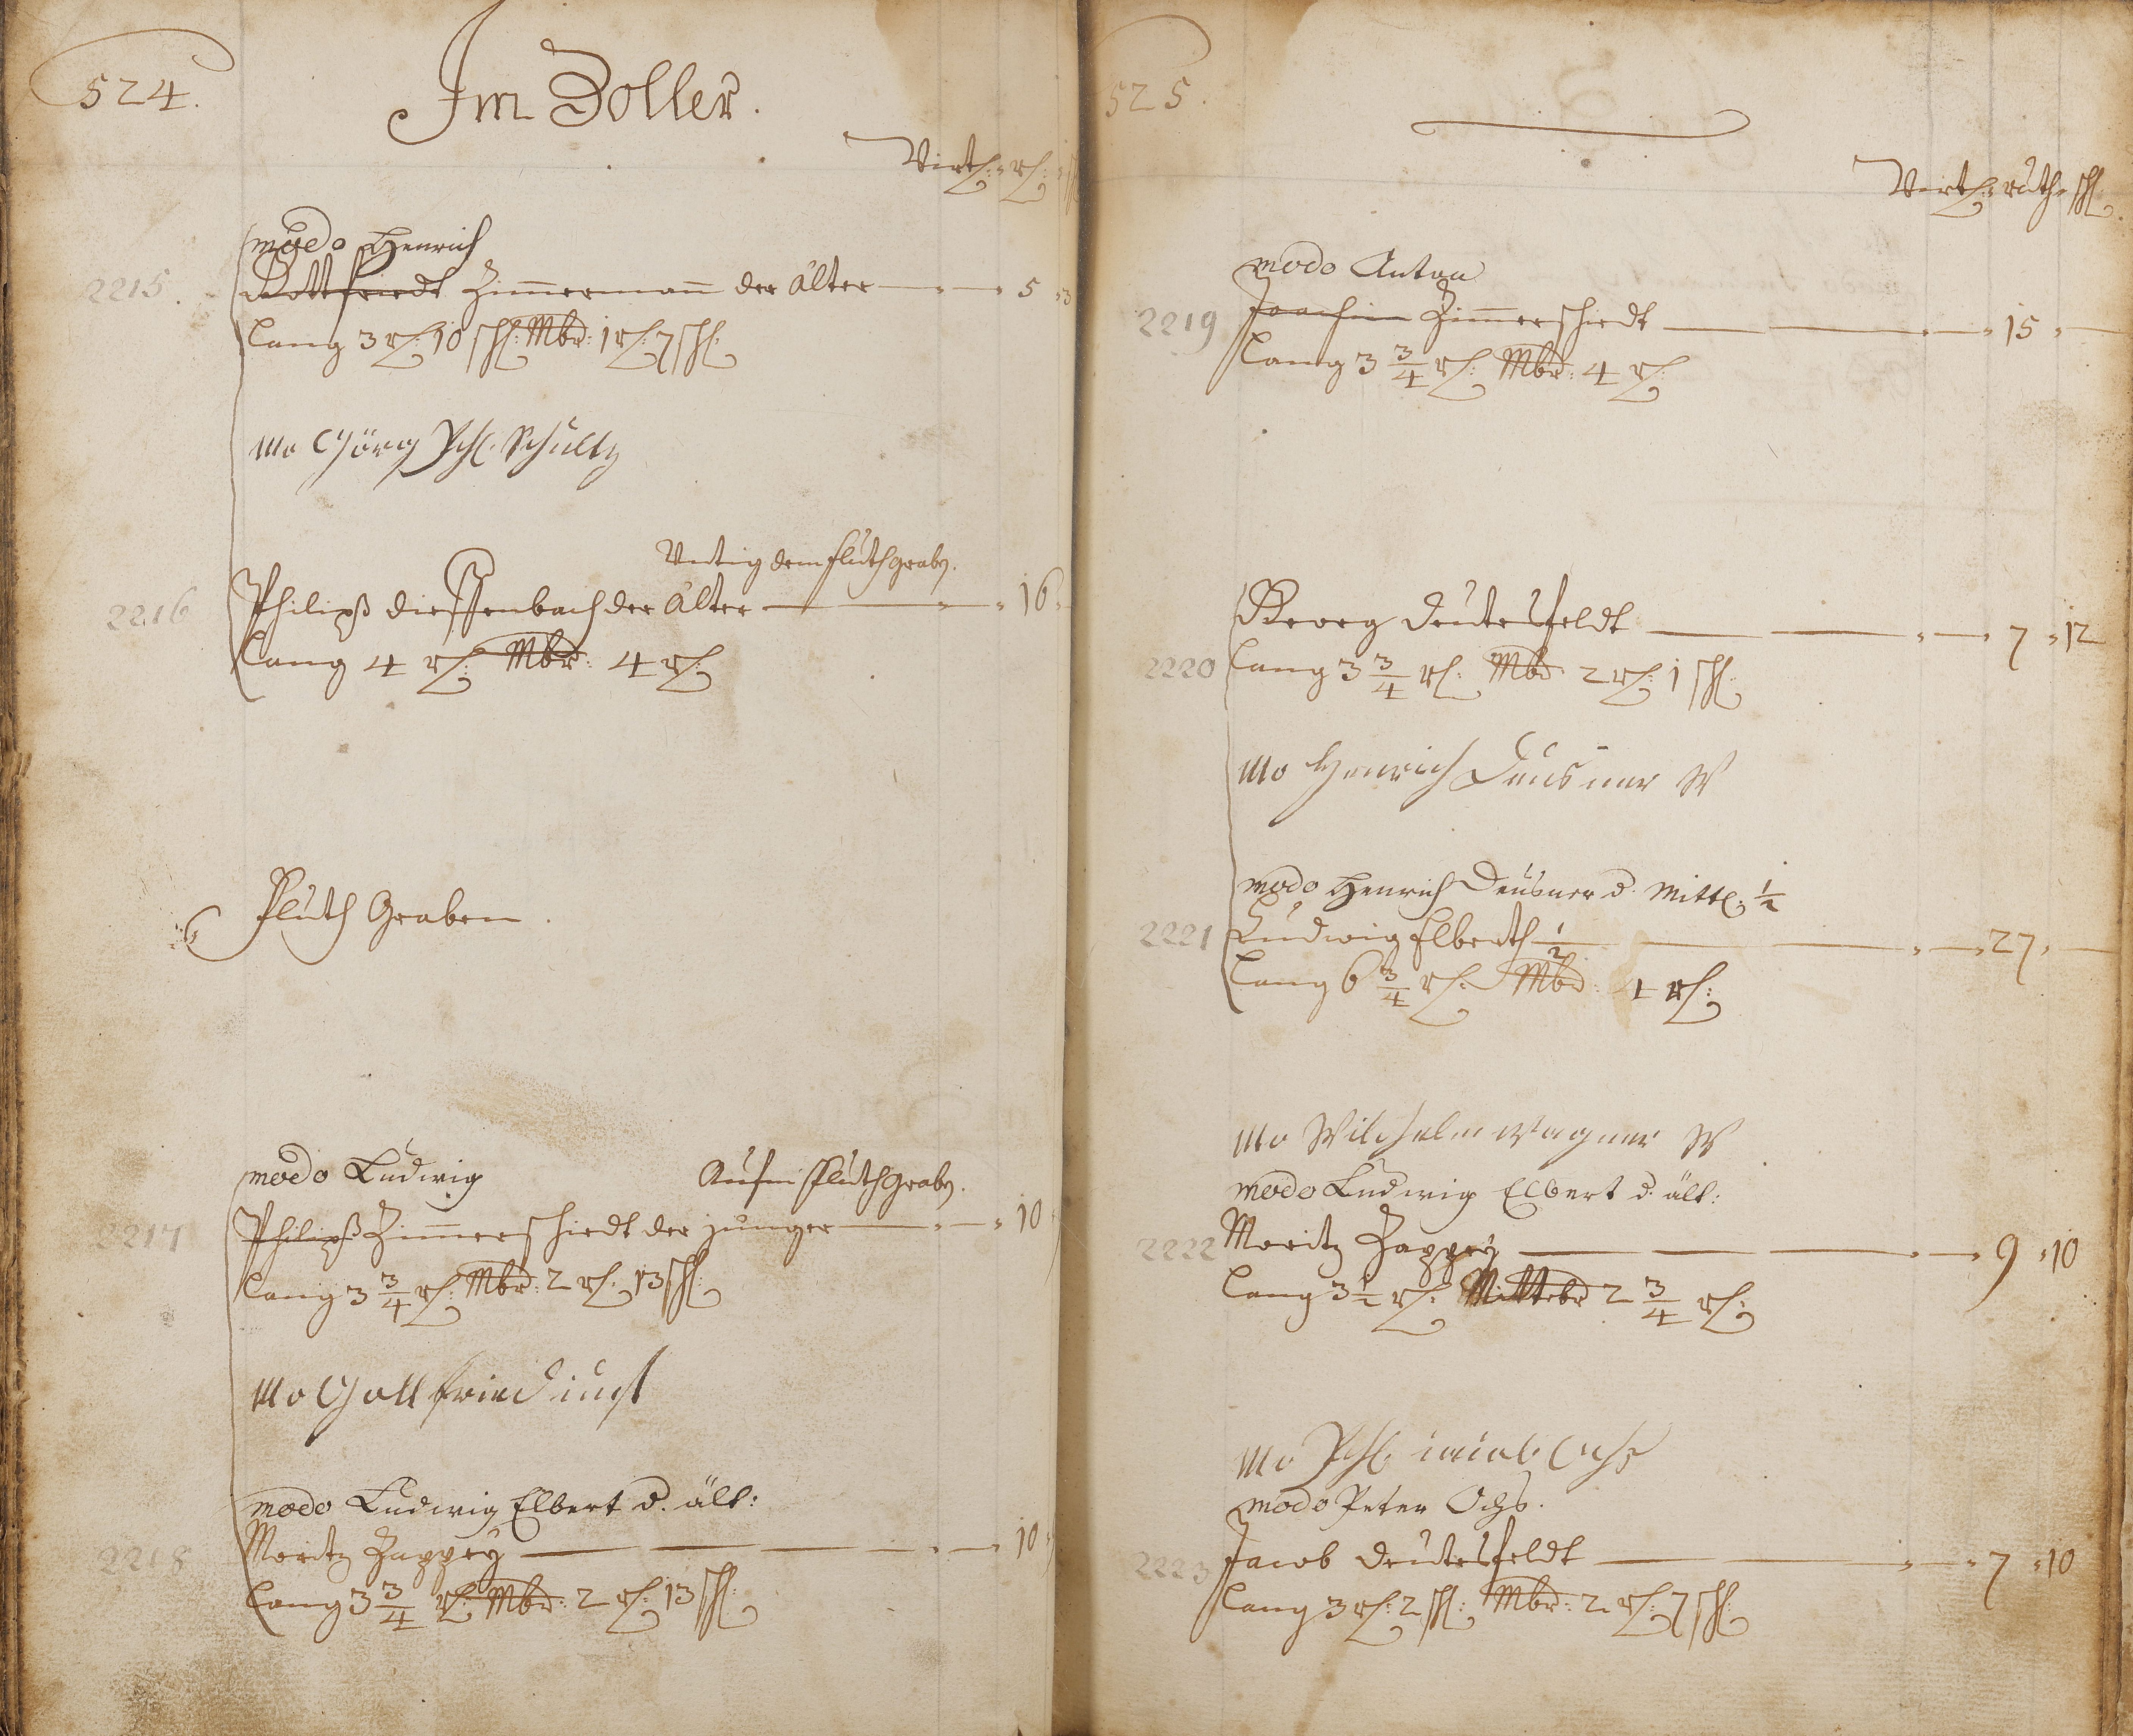 524.
Im Zoller.
Virtl: rh:
modo Henrich
2215. Gottfriedt Zimmermann der älter 5 3
lang 3 rh: 10 sch: Mbr: 1 rh: 7 sch:
mo Görg Phl. Schultz
Untig dem fluthgrabn.
2216 Philipß dieffenbach der älter 16
lang 4 rh: Mbr: 4 rh:
Fluth Graben.
modo Ludwig Aufm Fluthgrabn.
2217 Philipß Zimmerschiedt der junger 10
lang 3 3/4 rh: Mbr: 2 rh: 13 sch:
mo Gottfried
modo Ludwig Elbert d. ält:
2218 Moritz Zappey 10
lang 3 3/4 rh: Mbr: 2 rh: 13 sch:
525.
Virtl: ruth sch:
modo Anton
2219 Joachim Zimmerschiedt 15
lang 3 3/4 rh: Mbr: 4 rh:
Georg deutesfeldt 7 12
2220 lang 3 3/4 rh: Mbr: 2 rh: 1 sch:
mo Henrich Deusner W
modo Henrich Deusner d. Mittl: 1/2
2221 Ludwig Elberth 1/2 27
lang 6 3/4 rh: Mbr: 4 rh:
mo Wilhelm Wagner W
modo Ludwig Elbert d. ält:
2222 Moritz Zappey 9 10
lang 3 1/2 rh: Mittebr 2 3/4 rh:
mo Phl. Ochs
modo Peter Ochs.
2223 Jacob deutesfeldt 7 10
lang 3 rh: 2 sch: Mbr: 2 rh: 7 sch: